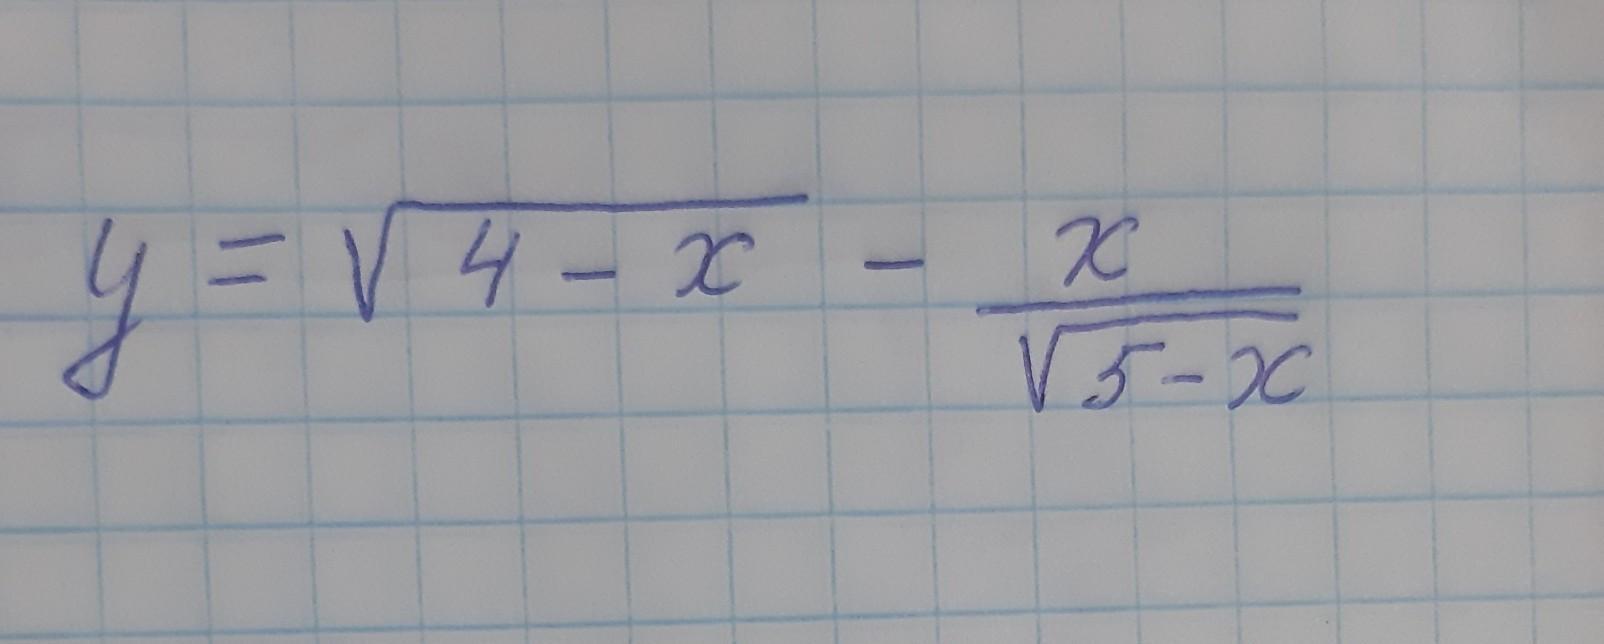 y = √(4 - x) - x/√(5 - x)